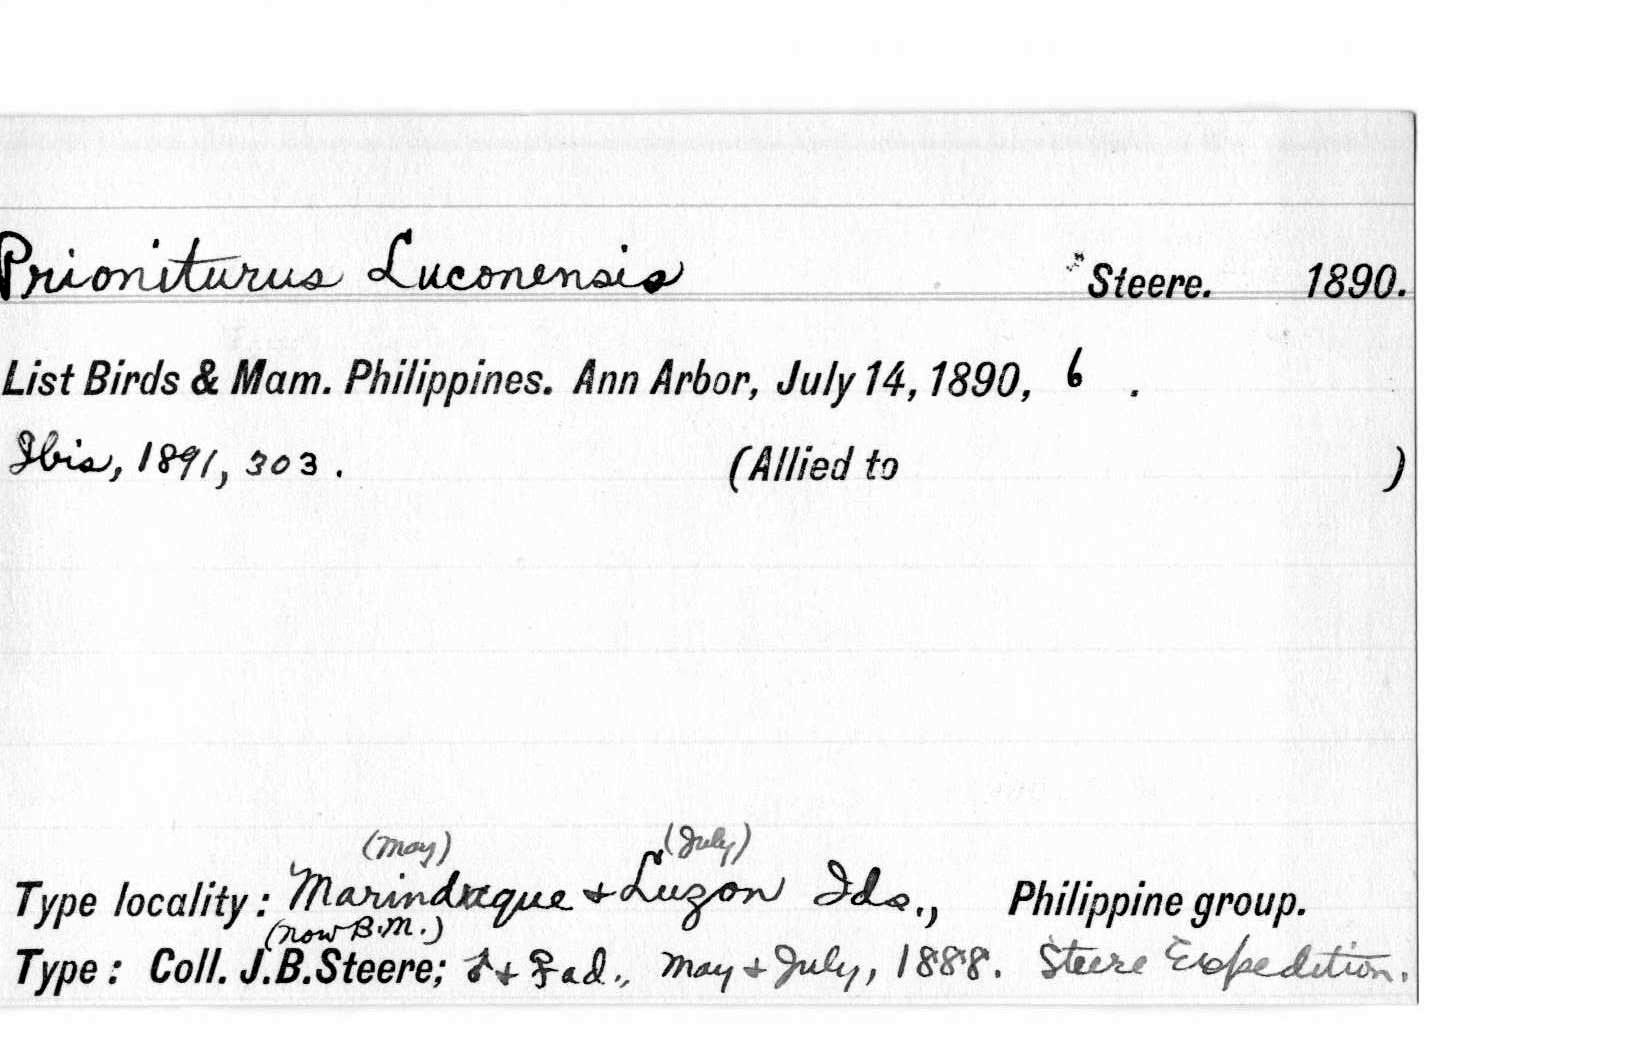 Prioniturus Luconensis Steere. 1890.
List Birds & Mam. Philippines. Ann Arbor, July 14, 1890, 6 .
Ibis, 1891, 303. (Allied to )
(May) (July)
Type locality: Marinduque & Luzon Ids., Philippine group.
(now B.M.)
Type: Coll. J.B.Steere; ♂ & ♀ ad., May & July, 1888. Steere Expedition.